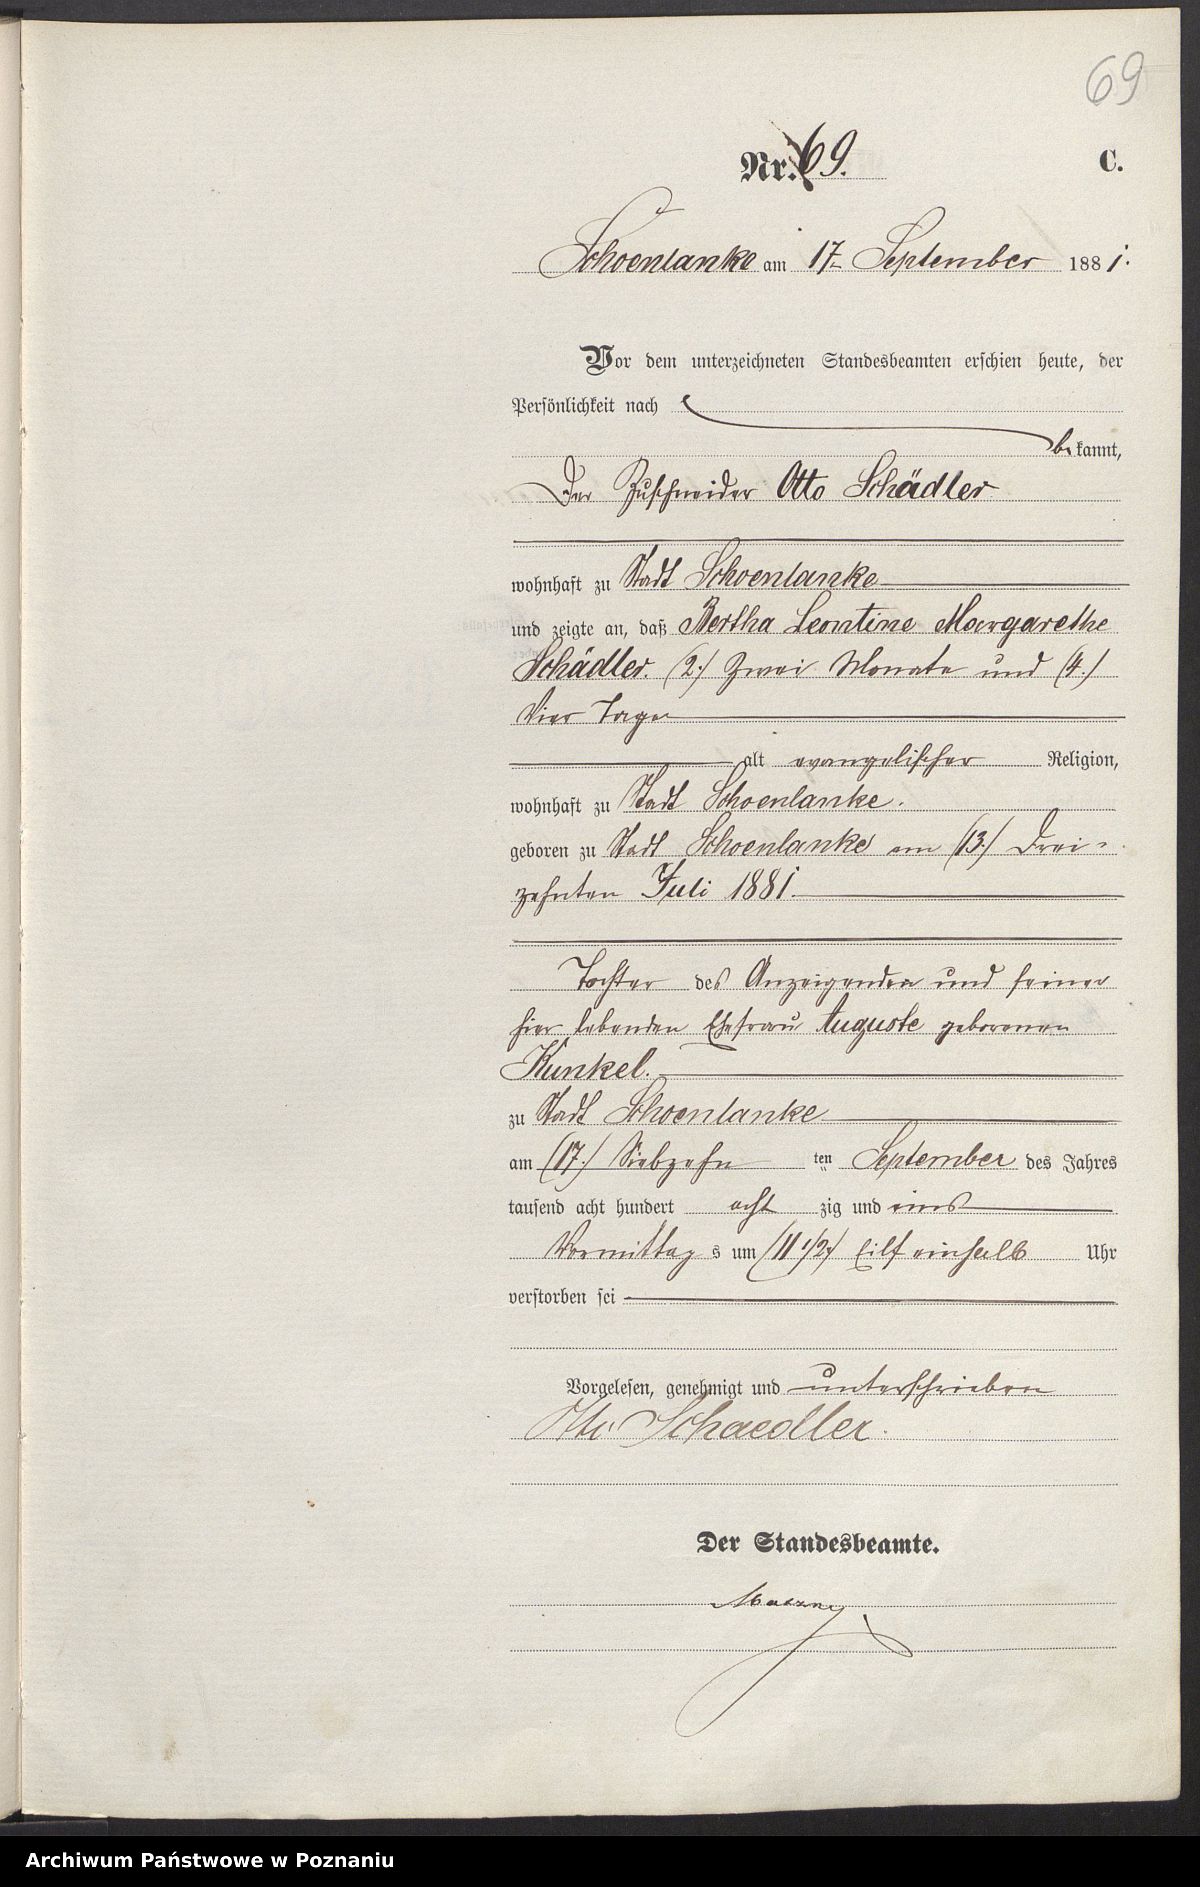 69
Nr. 69. C.
Schoenlanke am 17 September 1881.
Vor dem unterzeichneten Standesbeamten erschien heute, der
Persönlichkeit nach
bekannt,
Der Zuschneider Otto Schädler
wohnhaft zu Stadt Schoenlanke
und zeigte an, daß Bertha Leontine Margarethe
Schädler. (2.) Zwei Monate und (4.)
Vier Tage
alt evangelischer Religion,
wohnhaft zu Stadt Schoenlanke.
geboren zu Stadt Schoenlanke am (13.) Drei-
zehnten Juli 1881.
Tochter des Anzeigenden und seiner
hier lebenden Ehefrau Auguste geborenen
Kunkel.
zu Stadt Schoenlanke
am (17.) Siebzehn ten September des Jahres
tausend acht hundert acht zig und eins
Vormittag s um (11 1/2) Eilf einhalb Uhr
verstorben sei
Vorgelesen, genehmigt und unterschrieben
Otto Schaedler.
Der Standesbeamte.
Archiwum Państwowe w Poznaniu